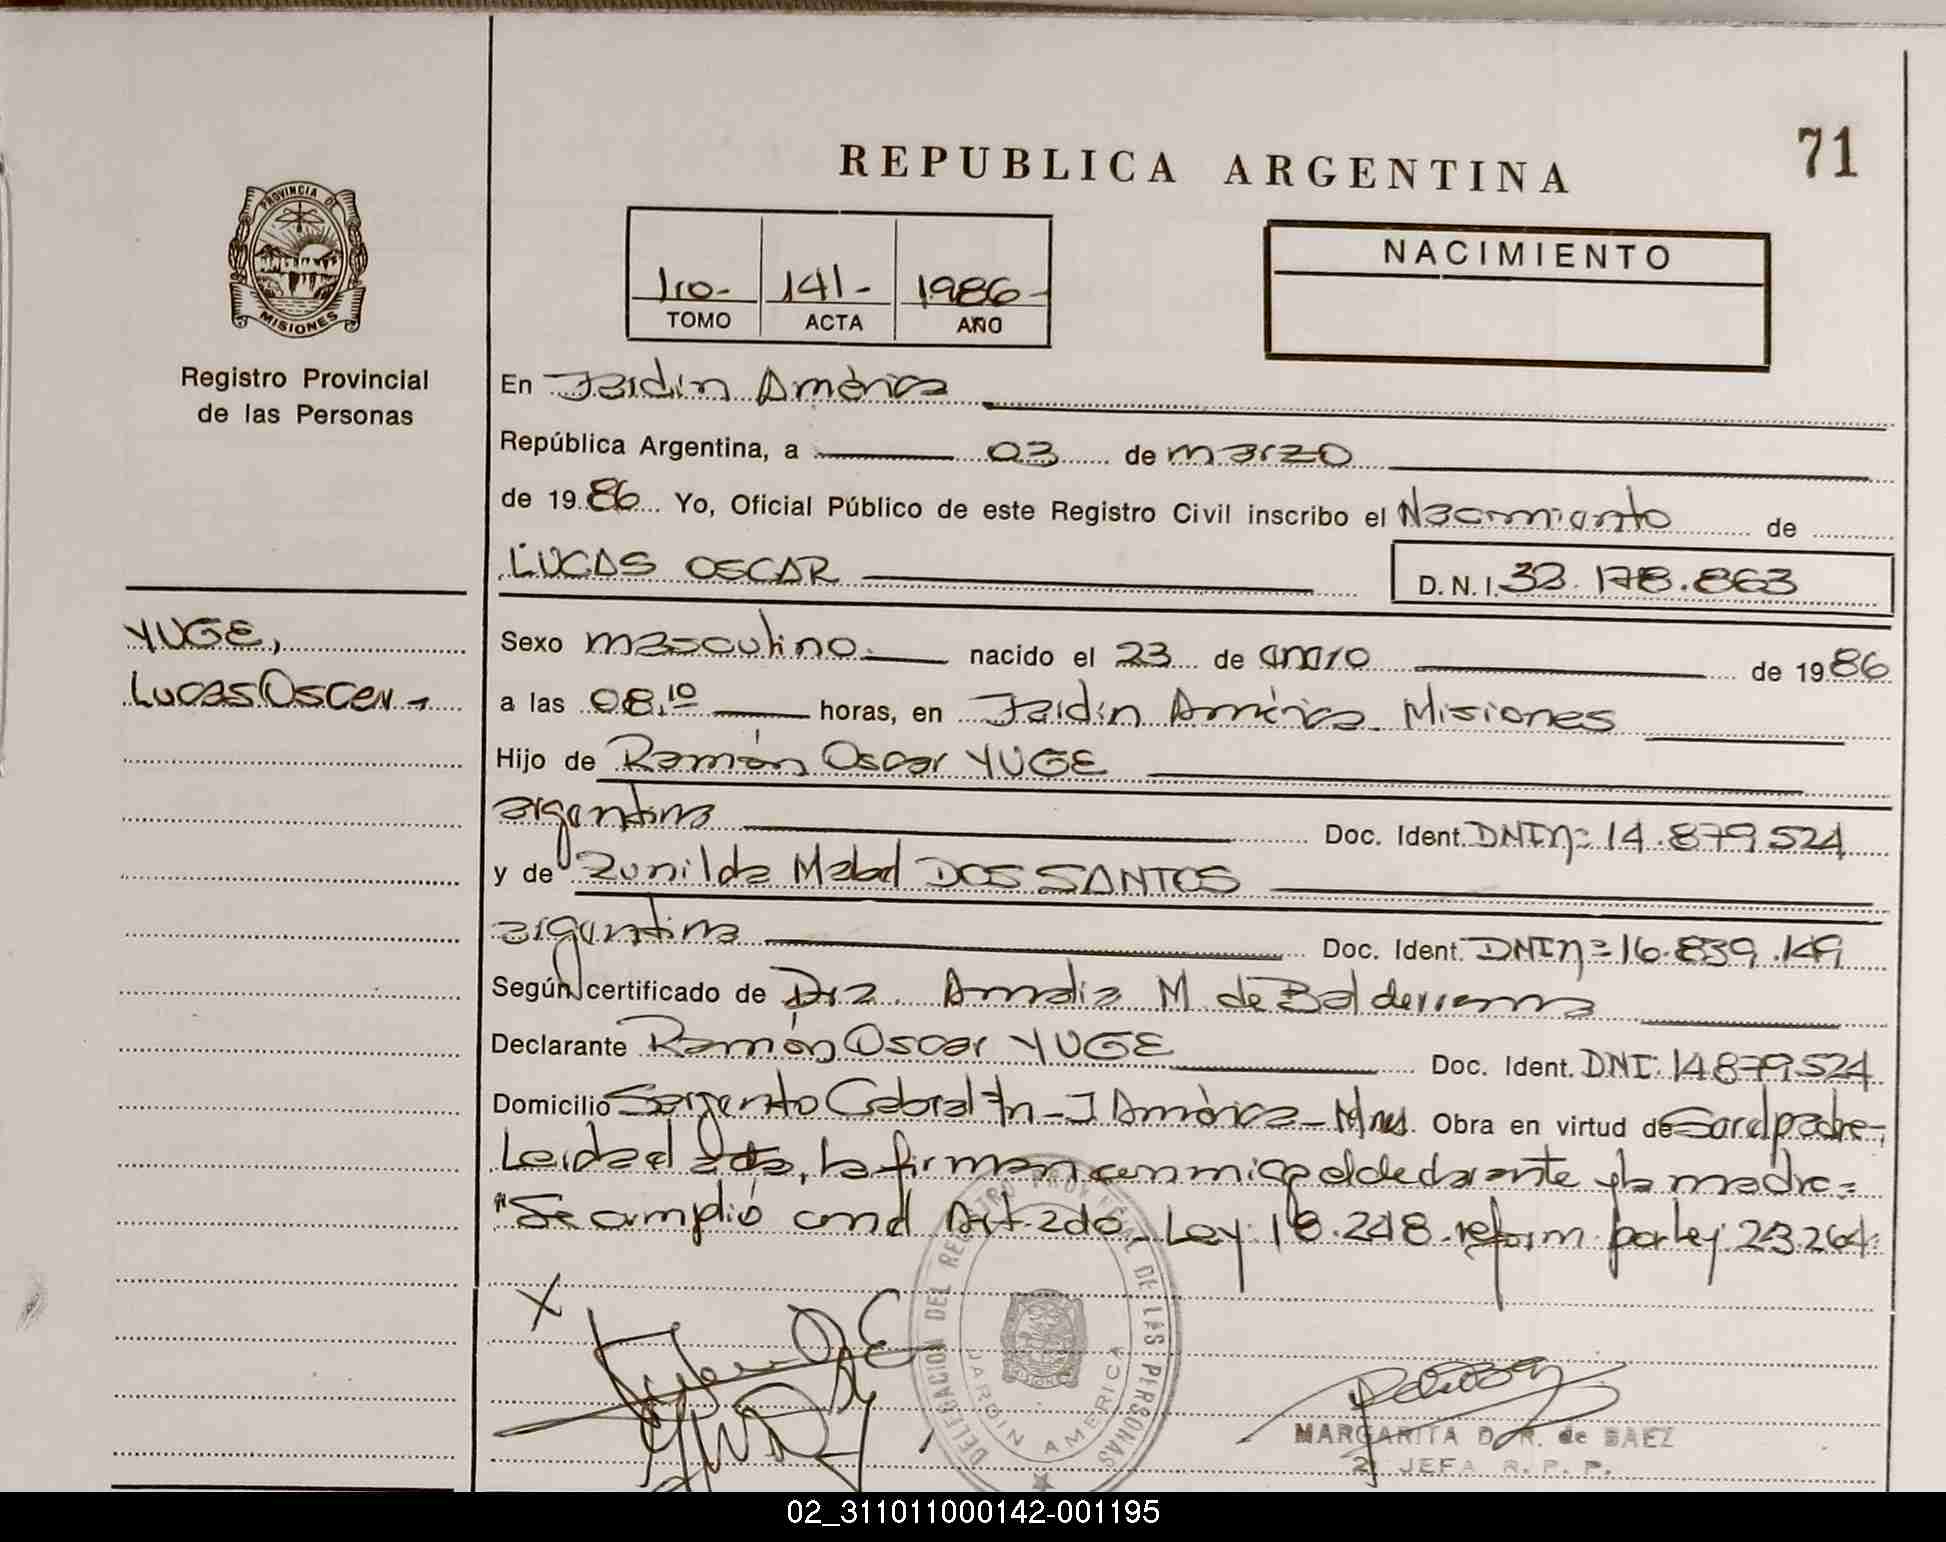 REPUBLICA ARGENTINA
71
PROVINCIA DE
MISIONES
Registro Provincial
de las Personas
1ro- 141- 1986-
TOMO ACTA AÑO
NACIMIENTO
En Jardín América
República Argentina, a 03 de marzo
de 1986 Yo, Oficial Público de este Registro Civil inscribo el Nacimiento de
LUCAS OSCAR D.N.I. 32.178.863
YUGE,
Lucas Oscar -
Sexo masculino. nacido el 23 de enero de 1986
a las 08,10 horas, en Jardín América. Misiones
Hijo de Ramón Oscar YUGE
argentino Doc. Ident. DNIn= 14.879.524
y de Zunilda Mabel DOS SANTOS
argentina Doc. Ident. DNIn= 16.839.149
Según certificado de Dra. Amalia M. de Balderrama
Declarante Ramón Oscar YUGE Doc. Ident. DNI: 14.879.524
Domicilio Sargento Cabral - J. América - Mnes. Obra en virtud de Ser el padre-,
Leída el acta, la firman conmigo el declarante y la madre=
"Se cumplió con el Art. 2do. Ley: 18.248 reform por Ley: 23.264:
X
DELEGACION DEL REGISTRO PROVINCIAL DE LAS PERSONAS
JARDIN AMERICA
MARGARITA D. R. de BAEZ
2 JEFA R. P. P.
02_311011000142-001195